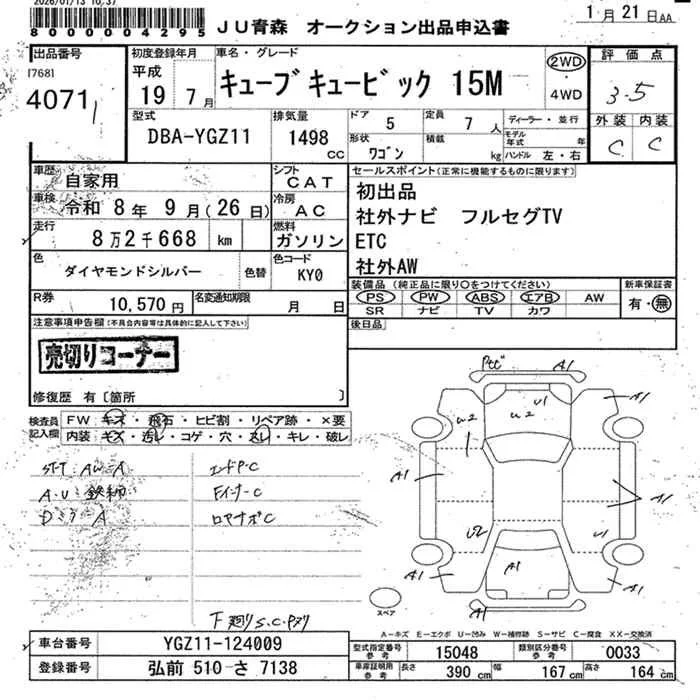 2026/01/13 10:37
8000004295
JU青森 オークション出品申込書
1月21日AA
出品番号
[7681
4071
初度登録年月
平成
19 7月
車名・グレード
キューブキュービック 15M
2WD
・
4WD
評価点
3.5
外装 内装
C C
型式
DBA-YGZ11
排気量
1498
CC
ドア 5
定員 7人
形状 ワゴン
積載 kg
ディーラー・並行
モデル年式 年
ハンドル 左・右
車歴 自家用
シフト CAT
車検 令和 8年 9月(26日)
冷房 AC
走行 8万2千668 km
燃料 ガソリン
色 ダイヤモンドシルバー
色替
色コード KY0
R券 10,570円
名変通知期限 月 日
セールスポイント(正常に機能するものに限ります)
初出品
社外ナビ フルセグTV
ETC
社外AW
装備品(純正品に限り○をつけてください)
PS PW ABS エアB AW
SR ナビ TV カワ
新車保証書
有・無
後日品
注意事項申告欄(不具合内容等は具体的に記入して下さい)
売切りコーナー
修復歴 有[箇所 ]
検査員
記入欄
FW キズ・飛石・ヒビ割・リペア跡・×要
内装 キズ・汚レ・コゲ・穴・スレ・キレ・破レ
STT AW A
エンドP・C
Fインナー・C
A
下廻りS.C.
A1
A1
U1
U2
U2
A1
A1
A1
U2
U1
A1
A1
A1
A1
スペア
A-キズ E-エクボ U-凹み W-補修跡 S-サビ C-腐食 XX-交換済
車台番号 YGZ11-124009
登録番号 弘前 510 さ 7138
型式指定番号
参考
15048
類別区分番号
参考
0033
車庫証明用
参考
長さ 390 cm 幅 167 cm 高さ 164 cm